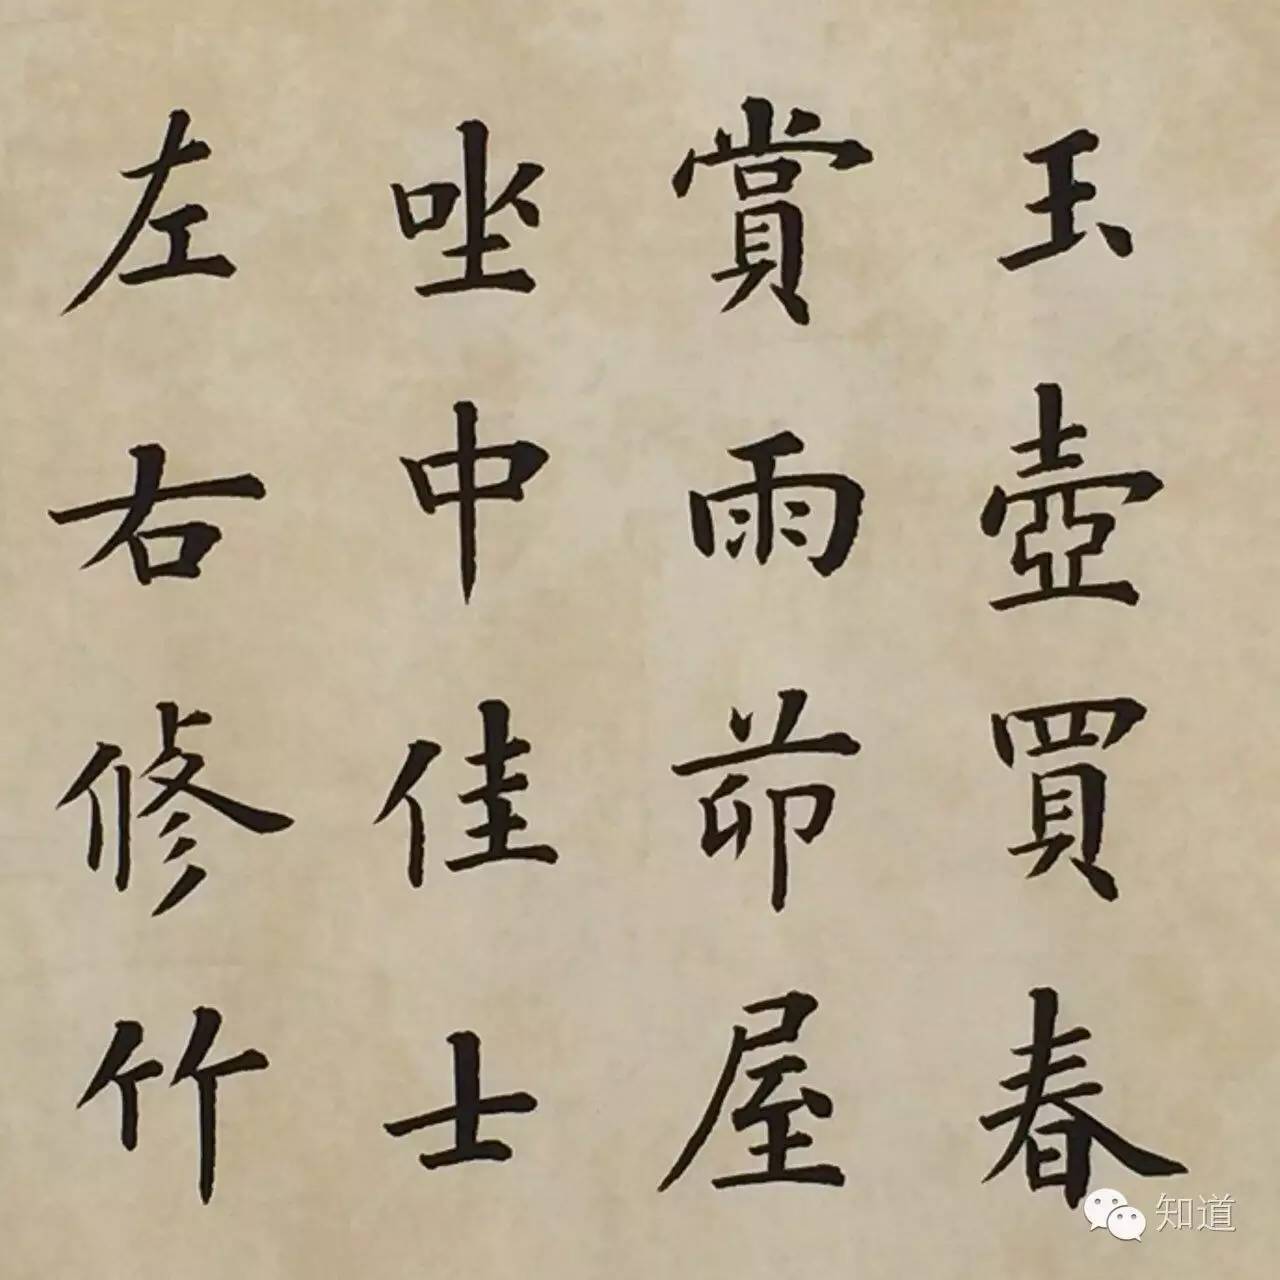 玉壺買春
賞雨茆屋
坐中佳士
左右修竹
知道